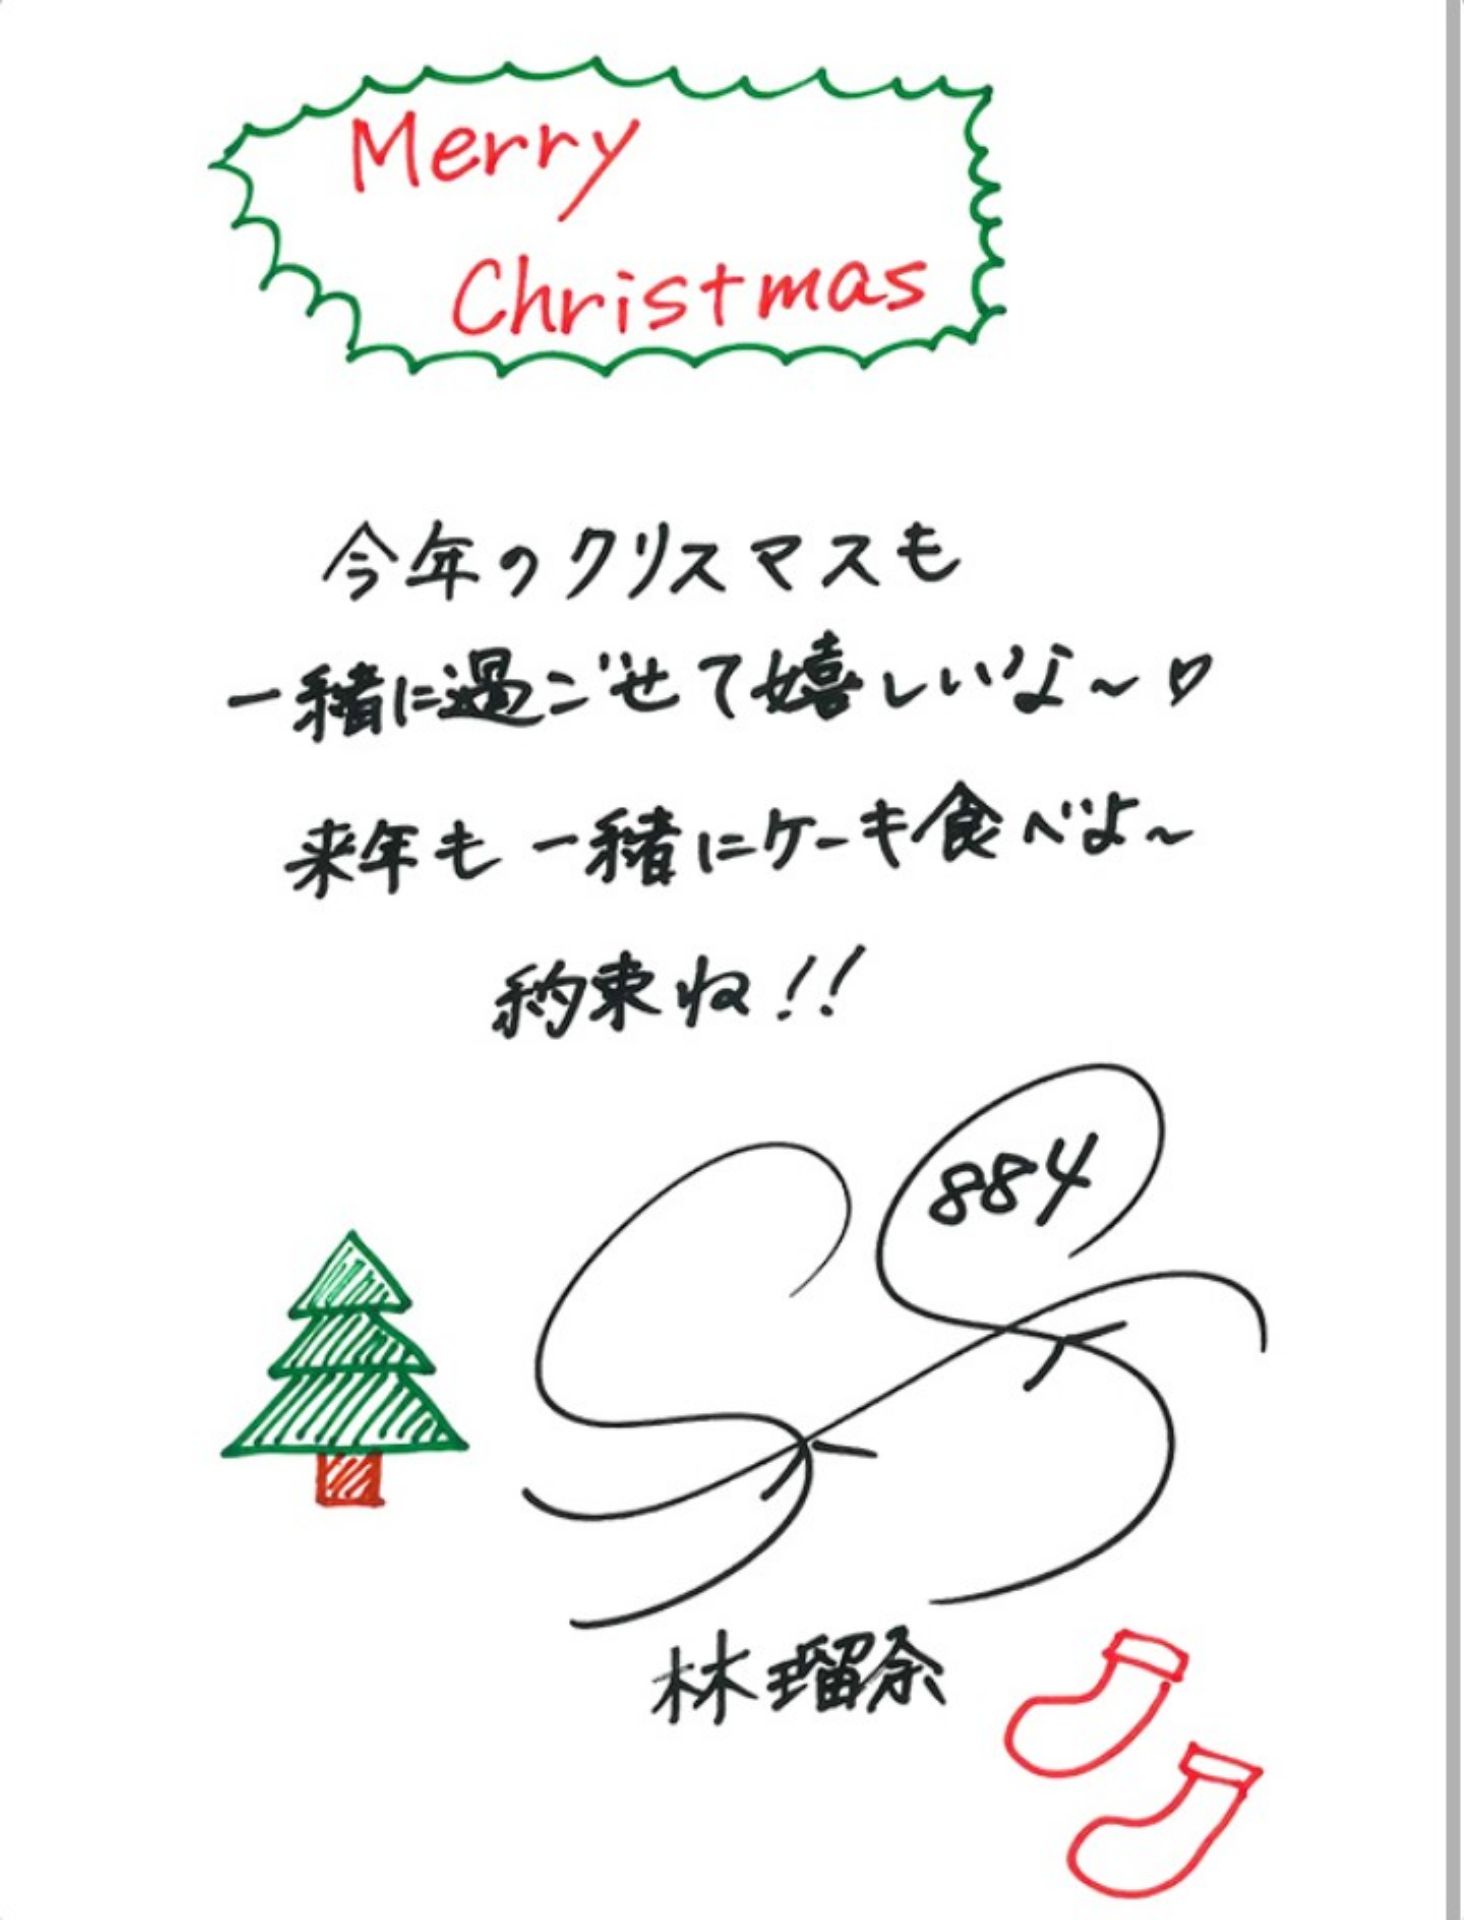 Merry
Christmas
今年のクリスマスも
一緒に過ごせて嬉しいな〜♡
来年も一緒にケーキ食べよ〜
約束ね!!
884
林瑠奈